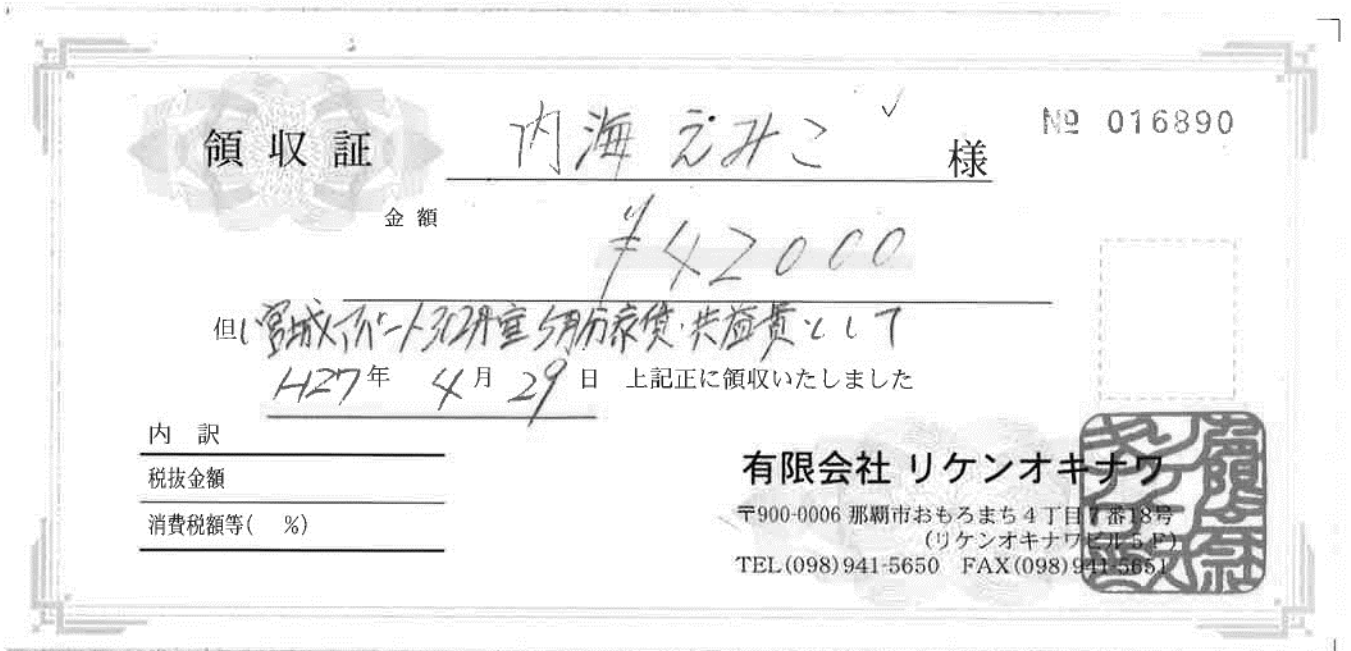 領収証 内海 えみこ 様 № 016890
金額 ¥42000
但し宮城アパート302号室5月分家賃・共益費として
H27年 4月 29日 上記正に領収いたしました
内訳
税抜金額
消費税額等( %)
有限会社 リケンオキナワ
〒900-0006 那覇市おもろまち4丁目7番18号
(リケンオキナワビル5F)
TEL(098)941-5650 FAX(098)941-5651